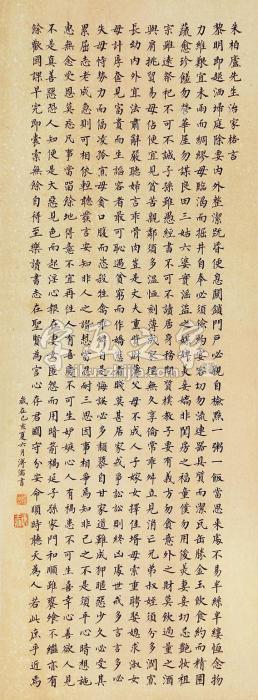 朱柏廬先生治家格言
黎明即起灑掃庭除要內外整潔既昏便息關鎖門戶必親自檢點一粥一飯當思來處不易半絲半縷恆念物
力維艱宜未雨而綢繆毋臨渴而掘井自奉必須儉約宴客切勿流連器具質而潔瓦缶勝金玉飲食約而精園
蔬愈珍饈勿營華屋勿謀良田三姑六婆實淫盜之媒婢美妾嬌非閨房之福童僕勿用俊美妻妾切忌艷妝祖
宗雖遠祭祀不可不誠子孫雖愚經書不可不讀居身務期質樸教子要有義方勿貪意外之財莫飲過量之酒
與肩挑貿易毋佔便宜見貧苦親鄰須多溫恤刻薄成家理無久享倫常乖舛立見消亡兄弟叔姪須分多潤寡
長幼內外宜法肅辭嚴聽婦言乖骨肉豈是丈夫重貲財薄父母不成人子嫁女擇佳婿毋索重聘娶媳求淑女
毋計厚奩見富貴而生諂容者最可恥遇貧窮而作驕態者賤莫甚居家戒爭訟訟則終凶處世戒多言言多必
失毋恃勢力而凌逼孤寡毋貪口腹而恣殺牲禽乖僻自是悔誤必多頹惰自甘家道難成狎暱惡少久必受其
累屈志老成急則可相依輕聽發言安知非人之譖愬當忍耐三思因事相爭焉知非己之不是須平心暗想施
惠無念受恩莫忘凡事當留餘地得意不宜再往人有喜慶不可生妒嫉心人有禍患不可生喜幸心善欲人見
不是真善惡恐人知便是大惡見色而起淫心報在妻女匿怨而用暗箭禍延子孫家門和順雖饔飧不繼亦有
餘歡國課早完即囊橐無餘自得至樂讀書志在聖賢為官心存君國守分安命順時聽天為人若此庶乎近焉
歲在己亥夏六月溥儒書